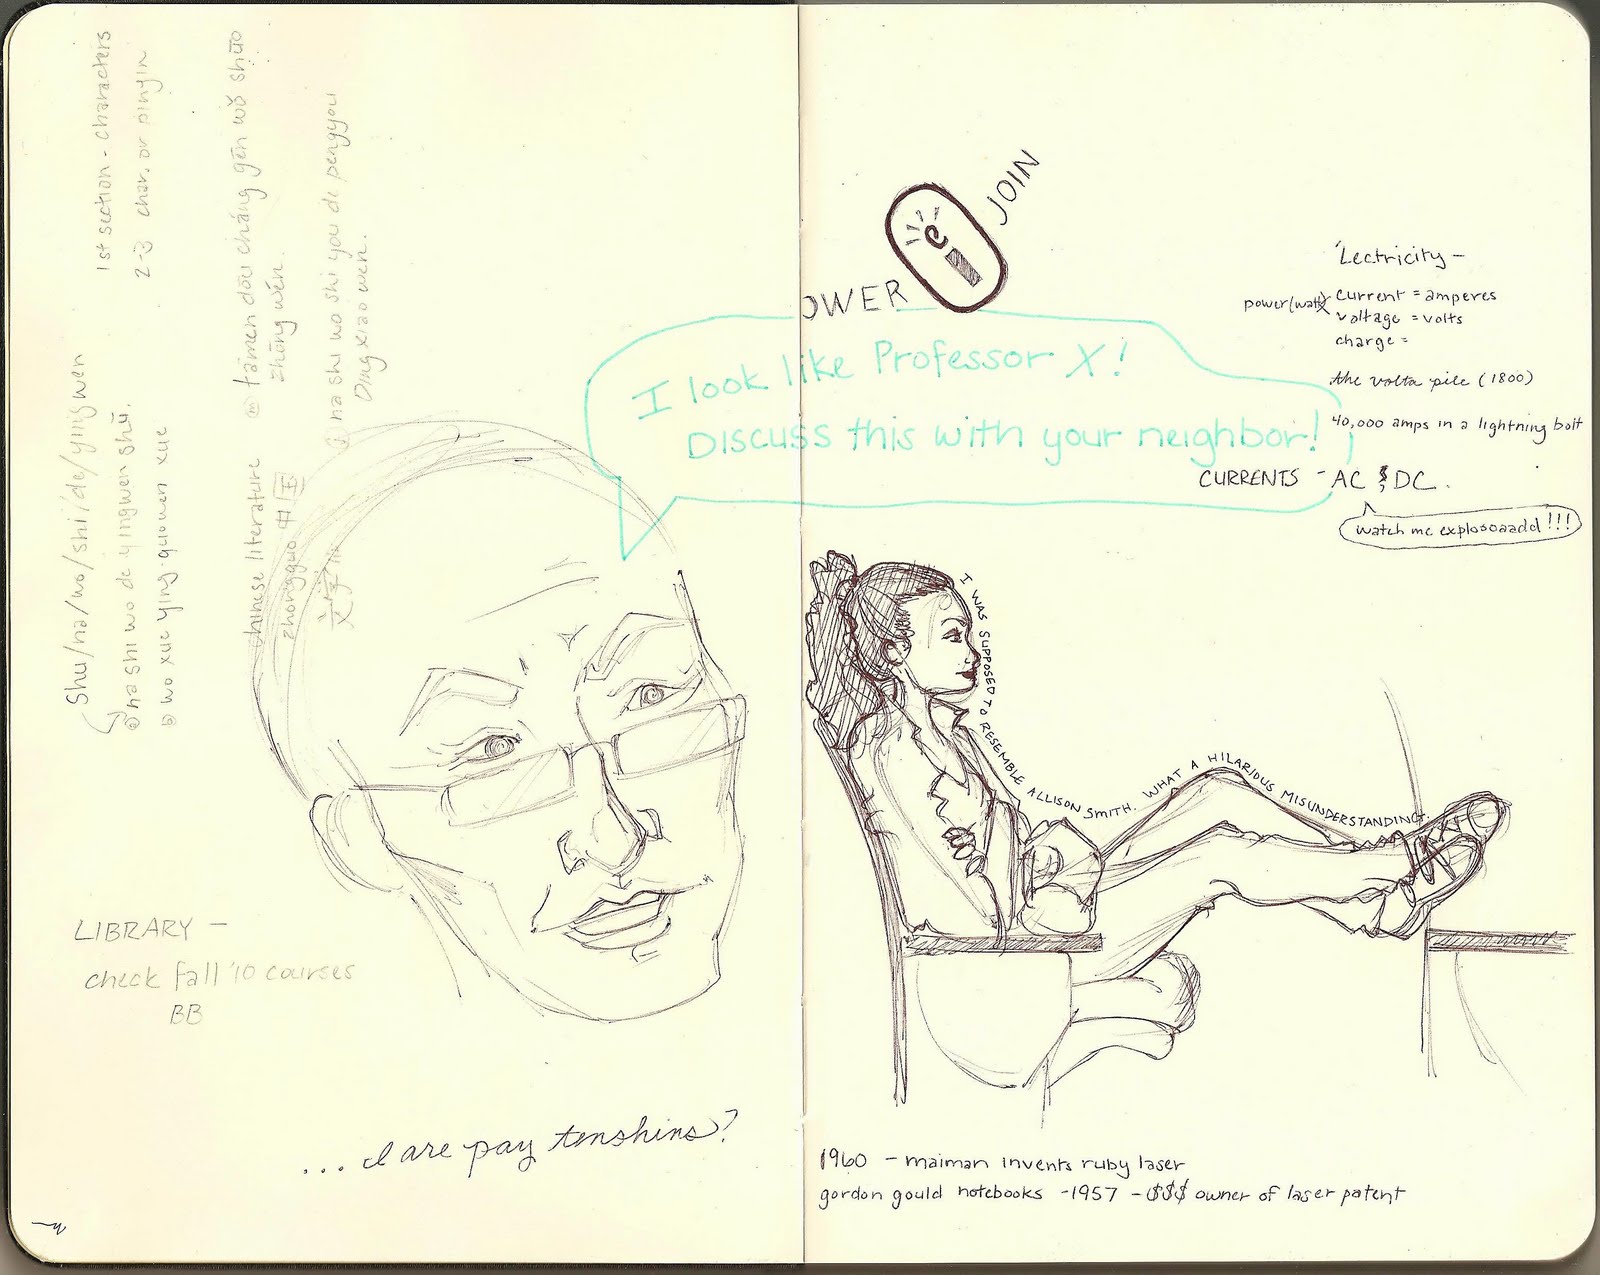 1st section - characters
2-3 char. or pinyin
② tāmen dōu cháng gēn wǒ shūo
zhōng wén.
② na shi wo shi you de pengyou
Ding xiao wen.
Shu/na/wo/shi/de/yingwen
@ na shi wo de yingwen shū.
b wo xue ying guowen xue
chinese literature
zhongguo 中国
文学
LIBRARY -
check fall '10 courses
BB
... I are pay tenshins?
OWER
ei
JOIN
I look like Professor X!
DISCUSS this with your neighbor!
'Lectricity -
power (watt) current = amperes
voltage = volts
charge =
the volta pile (1800)
40,000 amps in a lightning bolt
CURRENTS - AC & DC.
watch me explosoaadd!!!
I WAS SUPPOSED TO RESEMBLE ALLISON SMITH. WHAT A HILARIOUS MISUNDERSTANDING.
1960 - maiman invents ruby laser
gordon gould notebooks -1957 - $$$ owner of laser patent